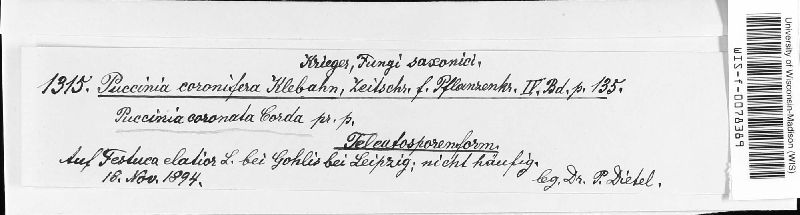 Krieger, Fungi saxonici.
1315. Puccinia coronifera Klebahn, Zeitschr. f. Pflanzenkr. IV. Bd. p. 135.
Puccinia coronata Corda pr. p.
Teleutosporenform.
Auf Festuca elatior L. bei Gohlis bei Leipzig; nicht häufig.
16. Nov. 1894.
lg. Dr. P. Dietel.
University of Wisconsin-Madison (WIS)
WIS-f-0078389